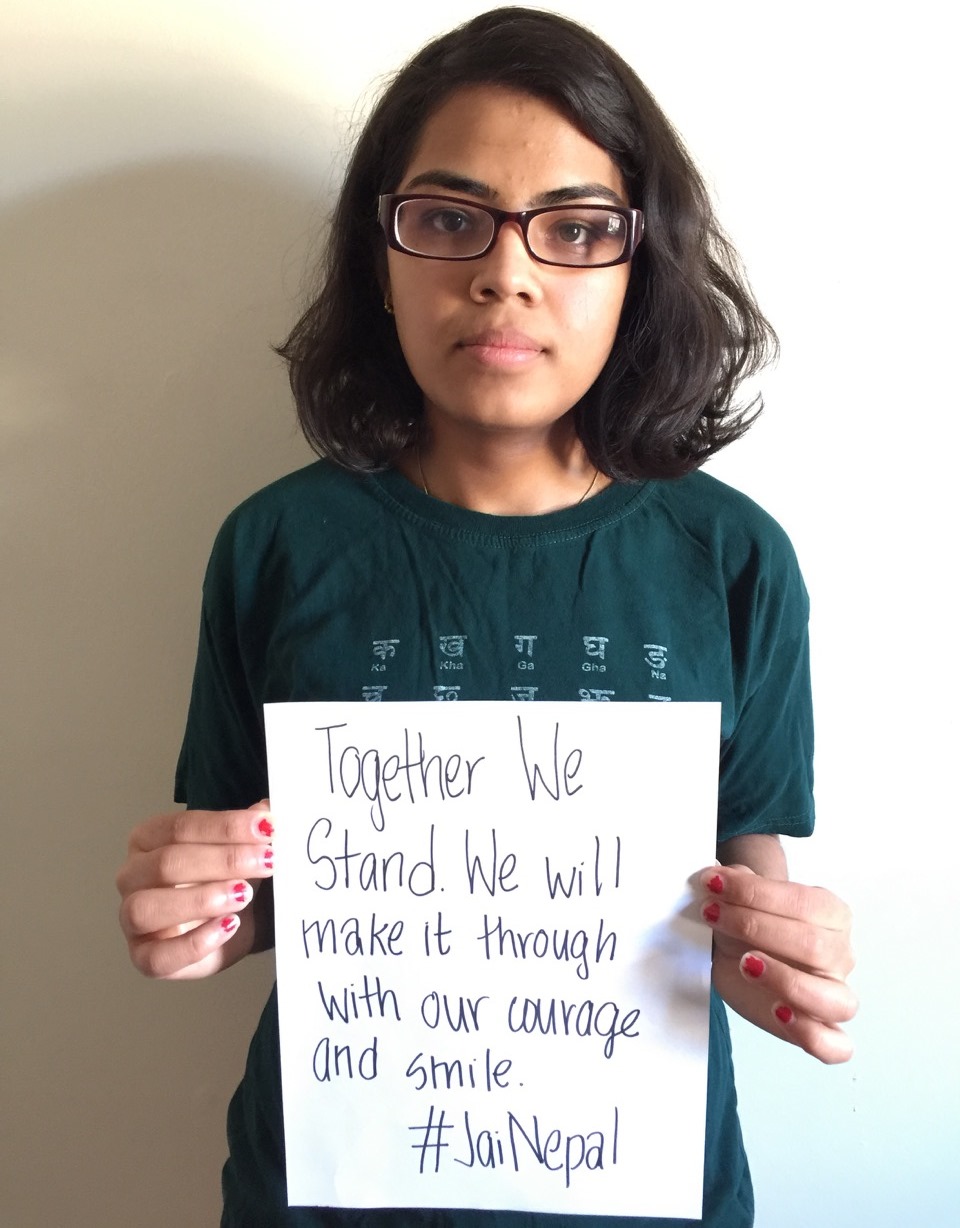 क ख ग घ ङ
Ka Kha Ga Gha Na
Together We
Stand. We will
make it through
with our courage
and smile.
#JaiNepal